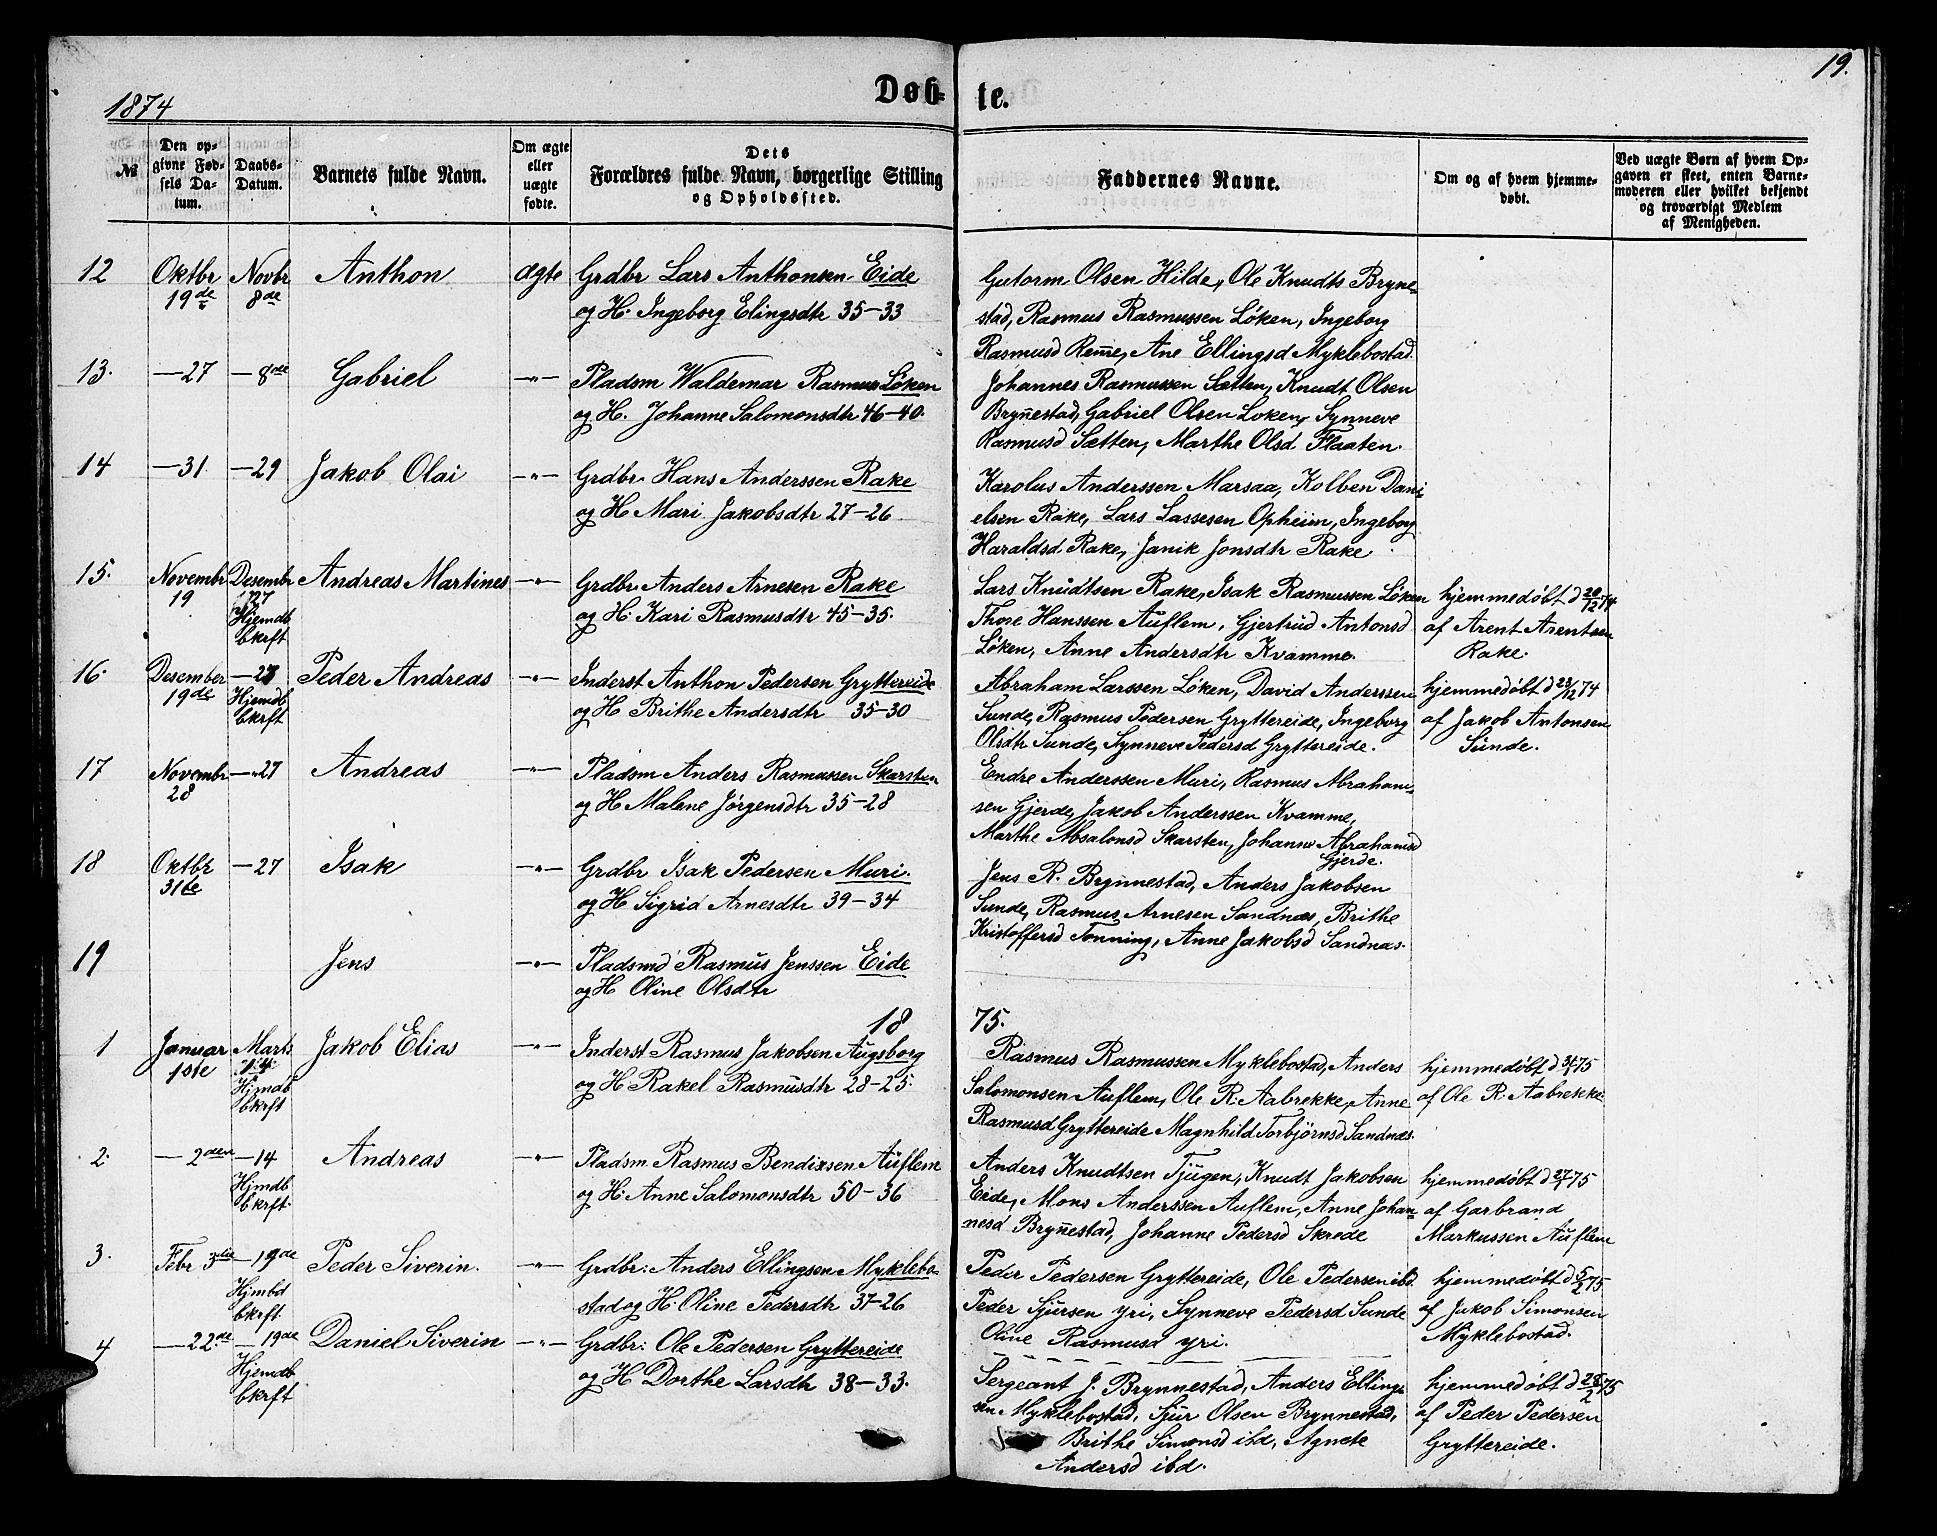 1874
Døb-
te.
19.
№
Den op-
givne Fød-
sels Da-
tum.
Daabs-
Datum.
Barnets fulde Navn.
Om ægte
eller
uægte
fødte.
Dets
Forældres fulde Navn, borgerlige Stilling
og Opholdssted.
Faddernes Navne.
Om og af hvem hjemme-
døbt.
Ved uægte Børn af hvem Op-
gaven er skeet, enten Barne-
moderen eller hvilket bekjendt
og troværdigt Medlem
af Menigheden.
12 Oktbr Novbr Anthon ægte Grdbr Lars Anthonsen Eide
19de 8de og H. Ingeborg Elingsdtr 35-33
Gutorm Olsen Hilde, Ole Knudts Bryne-
stad, Rasmus Rasmussen Löken, Ingeborg
Rasmusd Reme, Ane Ellingsd Myklebostad.
13. — 27 — 8de Gabriel —"— Pladsm Waldemar Rasmus Löken
og H. Johanne Salomonsdtr 46-40.
Johannes Rasmussen Sætten, Knudt Olsen
Brynestad, Gabriel Olsen Loken, Synneve
Rasmusd Sætten, Marthe Olsd Flaaten.
14 — 31. — 29 Jakob Olai —"— Grdbr. Hans Anderssen Rake
og H Mari Jakobsdtr 27-26
Karolus Anderssen Marsaa, Kolben Dani
elsen Rake, Lars Lassesen Opheim, Ingeborg
Haraldsd. Rake, Janik Jonsdtr Rake.
15. Novembr Desembr Andreas Martines —"— Grdbr. Anders Arnesen Rake
19 27
Hjemdb
bkrft
og H Kari Rasmusdtr 45-35.
Lars Knudtsen Rake, Isak Rasmussen Löken
Thore Hanssen Auflem, Gjertrud Antonsd
Löken, Anne Andersdtr Kvamme.
hjemmedöbt d 20/12 74
af Arent Arentsen
Rake.
16. Desember — 27 Peder Andreas —"— Inderst Anthon Pedersen Gryttereide
19de Hjemdb
bkrft
og H Brithe Andersdtr 35-30
Abraham Larssen Löken, David Anderssen
Sunde, Rasmus Pedersen Gryttereide, Ingeborg
Olsdtr Sunde, Synneve Pedersd Gryttereide.
hjemmedöbt d 23/12 74
af Jakob Antonsen
Sunde.
17 Novembr — 27 Andreas —"— Pladsm Anders Rasmussen Skarsten
28 og H Malene Jörgensdtr 35-28
Endre Anderssen Muri, Rasmus Abraham-
sen Gjerde, Jakob Anderssen Kvamme,
Marthe Absalonsd Skarsten, Johanne Abrahamsd
Gjerde.
18 Oktbr — 27 Isak —"— Grdbr Isak Pedersen Muri.
31te og H Sigrid Arnesdtr 39-34
Jens R. Brynnestad, Anders Jakobsen
Sunde, Rasmus Arnesen Sandnæs, Brithe
Kristoffersd Tonning, Anne Jakobsd Sandnæs.
19 Jens —"— Pladsmd Rasmus Jenssen Eide
og H Oline Olsdtr
18
75.
1 Januar Marts Jakob Elias —"— Inderst Rasmus Jakobsen Augsborg
1ste 14
Hjmdb
bkrft
og H Rakel Rasmusdtr 28-25.
Rasmus Rasmussen Myklebostad, Anders
Salomonsen Auflem, Ole R. Aabrekke, Anne
Rasmusd Gryttereide Magnhild Torbjörnsd Sandnæs.
hjemmedöbt d 3/1 75
af Ole R. Aabrekke
2. — 2den — 14 Andreas —"— Pladsm Rasmus Bendixsen Auflem
Hjmdb
bkrft.
og H. Anne Salomonsdtr 50-36
Anders Knudtsen Tjugen, Knudt Jakobsen
Eide, Mons Anderssen Auflem, Anne Johan-
nesd Brynestad, Johanne Pedersd Skrede
hjemmedöbt d 27/1 75
af Garbrand
Markussen Auflem
3. Febr 3die — 19de Peder Siverin. —"— Grdbr: Anders Ellingsen Myklebo-
Hjmbd
bkrft.
stad og H. Oline Pedersdtr 37-26
Peder Pedersen Gryttereide, Ole Pedersen ibd
Peder Sjursen Yri, Synneve Pedersd Sunde
Oline Rasmusd Yri.
hjemmedöbt d 5/2 75
af Jakob Simonsen
Myklebostad.
4 — 22de — 19de Daniel Siverin —"— Grdbr: Ole Pedersen Gryttereide
Hjemdb
bkrft
og H Dorthe Larsdtr 38-33.
Sergeant J. Brynnestad, Anders Elling-
sen Myklebostad, Sjur Olsen Brynnestad,
Brithe Simonsd ibd, Agnete
Andersd ibd.
hjemmedöbt d 28/2 75
af Peder Pedersen
Gryttereide.